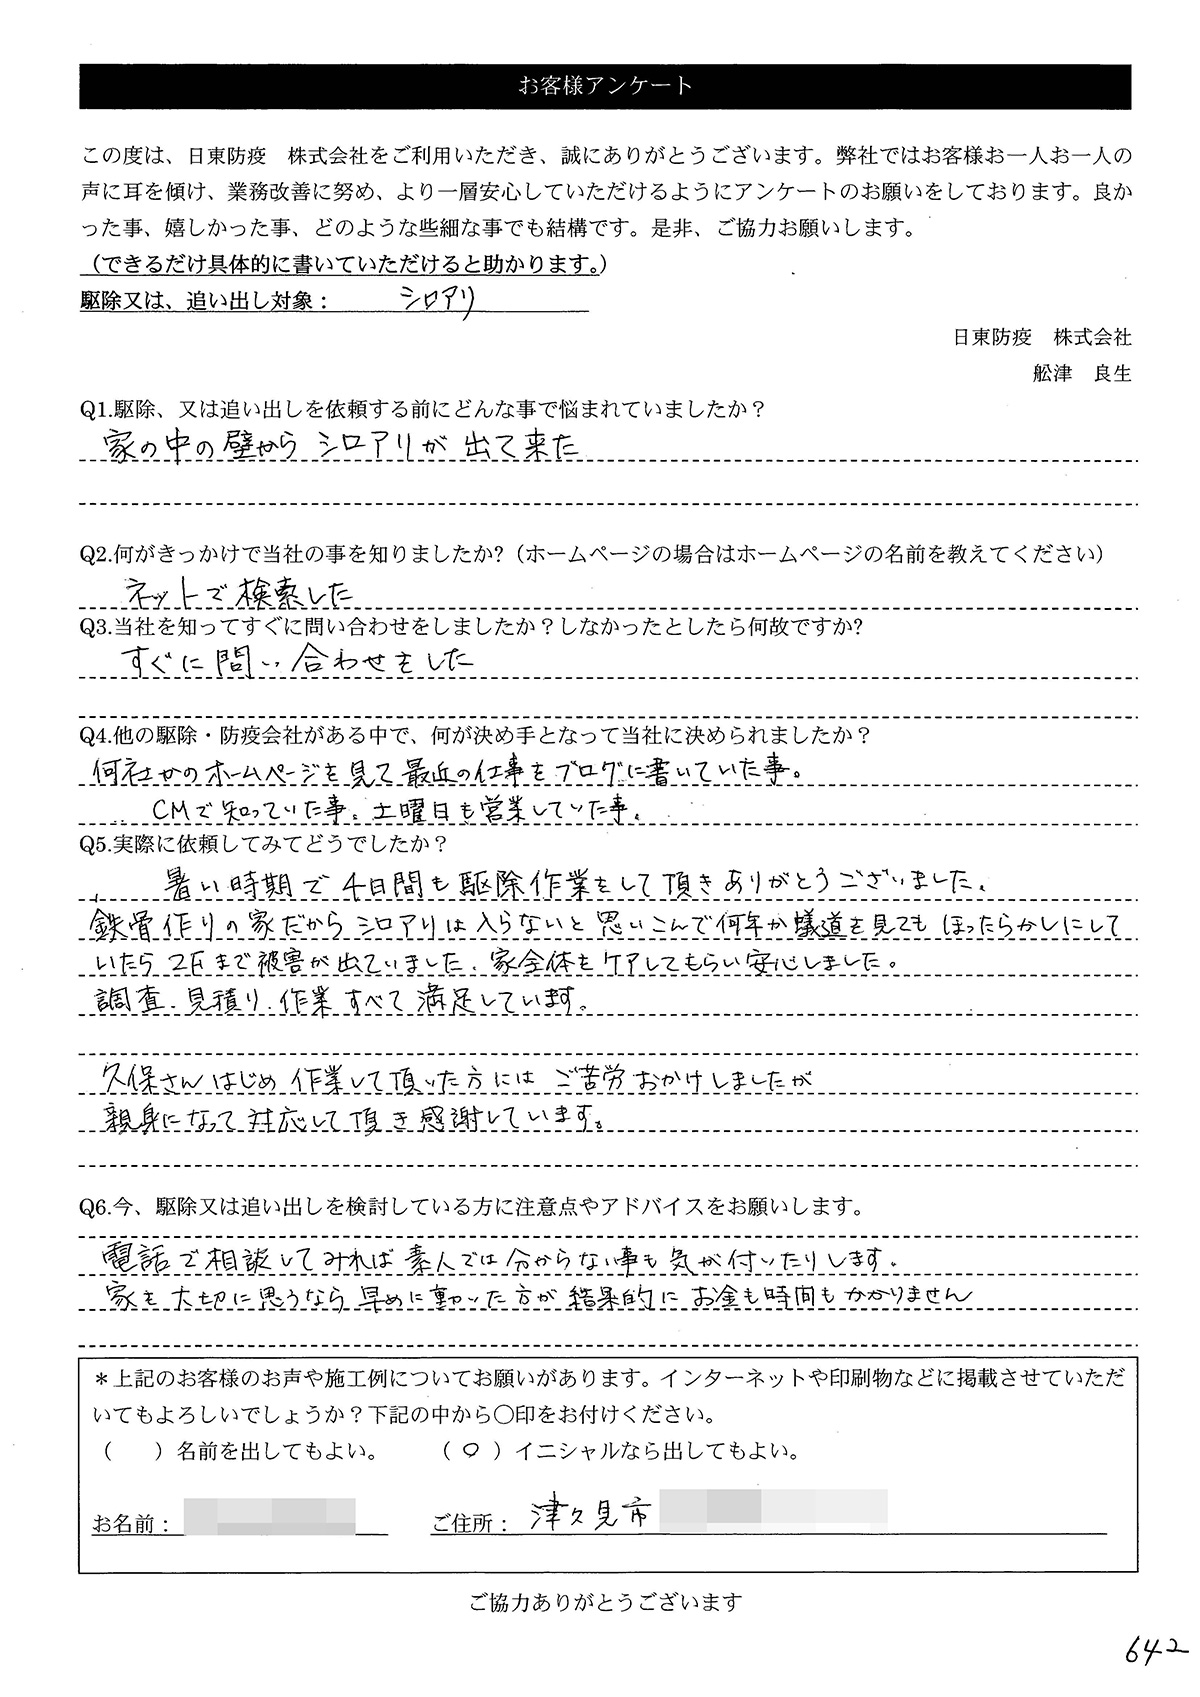 お客様アンケート
この度は、日東防疫　株式会社をご利用いただき、誠にありがとうございます。弊社ではお客様お一人お一人の
声に耳を傾け、業務改善に努め、より一層安心していただけるようにアンケートのお願いをしております。良か
った事、嬉しかった事、どのような些細な事でも結構です。是非、ご協力お願いします。
（できるだけ具体的に書いていただけると助かります。）
駆除又は、追い出し対象： シロアリ
日東防疫　株式会社
舩津　良生
Q1.駆除、又は追い出しを依頼する前にどんな事で悩まれていましたか？
家の中の壁からシロアリが出て来た
Q2.何がきっかけで当社の事を知りましたか?（ホームページの場合はホームページの名前を教えてください）
ネットで検索した
Q3.当社を知ってすぐに問い合わせをしましたか？しなかったとしたら何故ですか?
すぐに問い合わせをした
Q4.他の駆除・防疫会社がある中で、何が決め手となって当社に決められましたか？
何社かのホームページを見て最近の仕事をブログに書いていた事。
CMで知っていた事。土曜日も営業していた事。
Q5.実際に依頼してみてどうでしたか？
暑い時期で4日間も駆除作業をして頂きありがとうございました。
鉄骨作りの家だからシロアリは入らないと思いこんで何年か蟻道を見てもほったらかしにして
いたら2Fまで被害が出ていました。家全体をケアしてもらい安心しました。
調査、見積り、作業すべて満足しています。
久保さんはじめ作業して頂いた方にはご苦労おかけしましたが
親身になって対応して頂き感謝しています。
Q6.今、駆除又は追い出しを検討している方に注意点やアドバイスをお願いします。
電話で相談してみれば素人では分からない事も気が付いたりします。
家を大切に思うなら早めに動いた方が結果的にお金も時間もかかりません
＊上記のお客様のお声や施工例についてお願いがあります。インターネットや印刷物などに掲載させていただ
いてもよろしいでしょうか？下記の中から〇印をお付けください。
（　　）名前を出してもよい。　　（ ○ ）イニシャルなら出してもよい。
お名前：　　ご住所： 津久見市
ご協力ありがとうございます
642